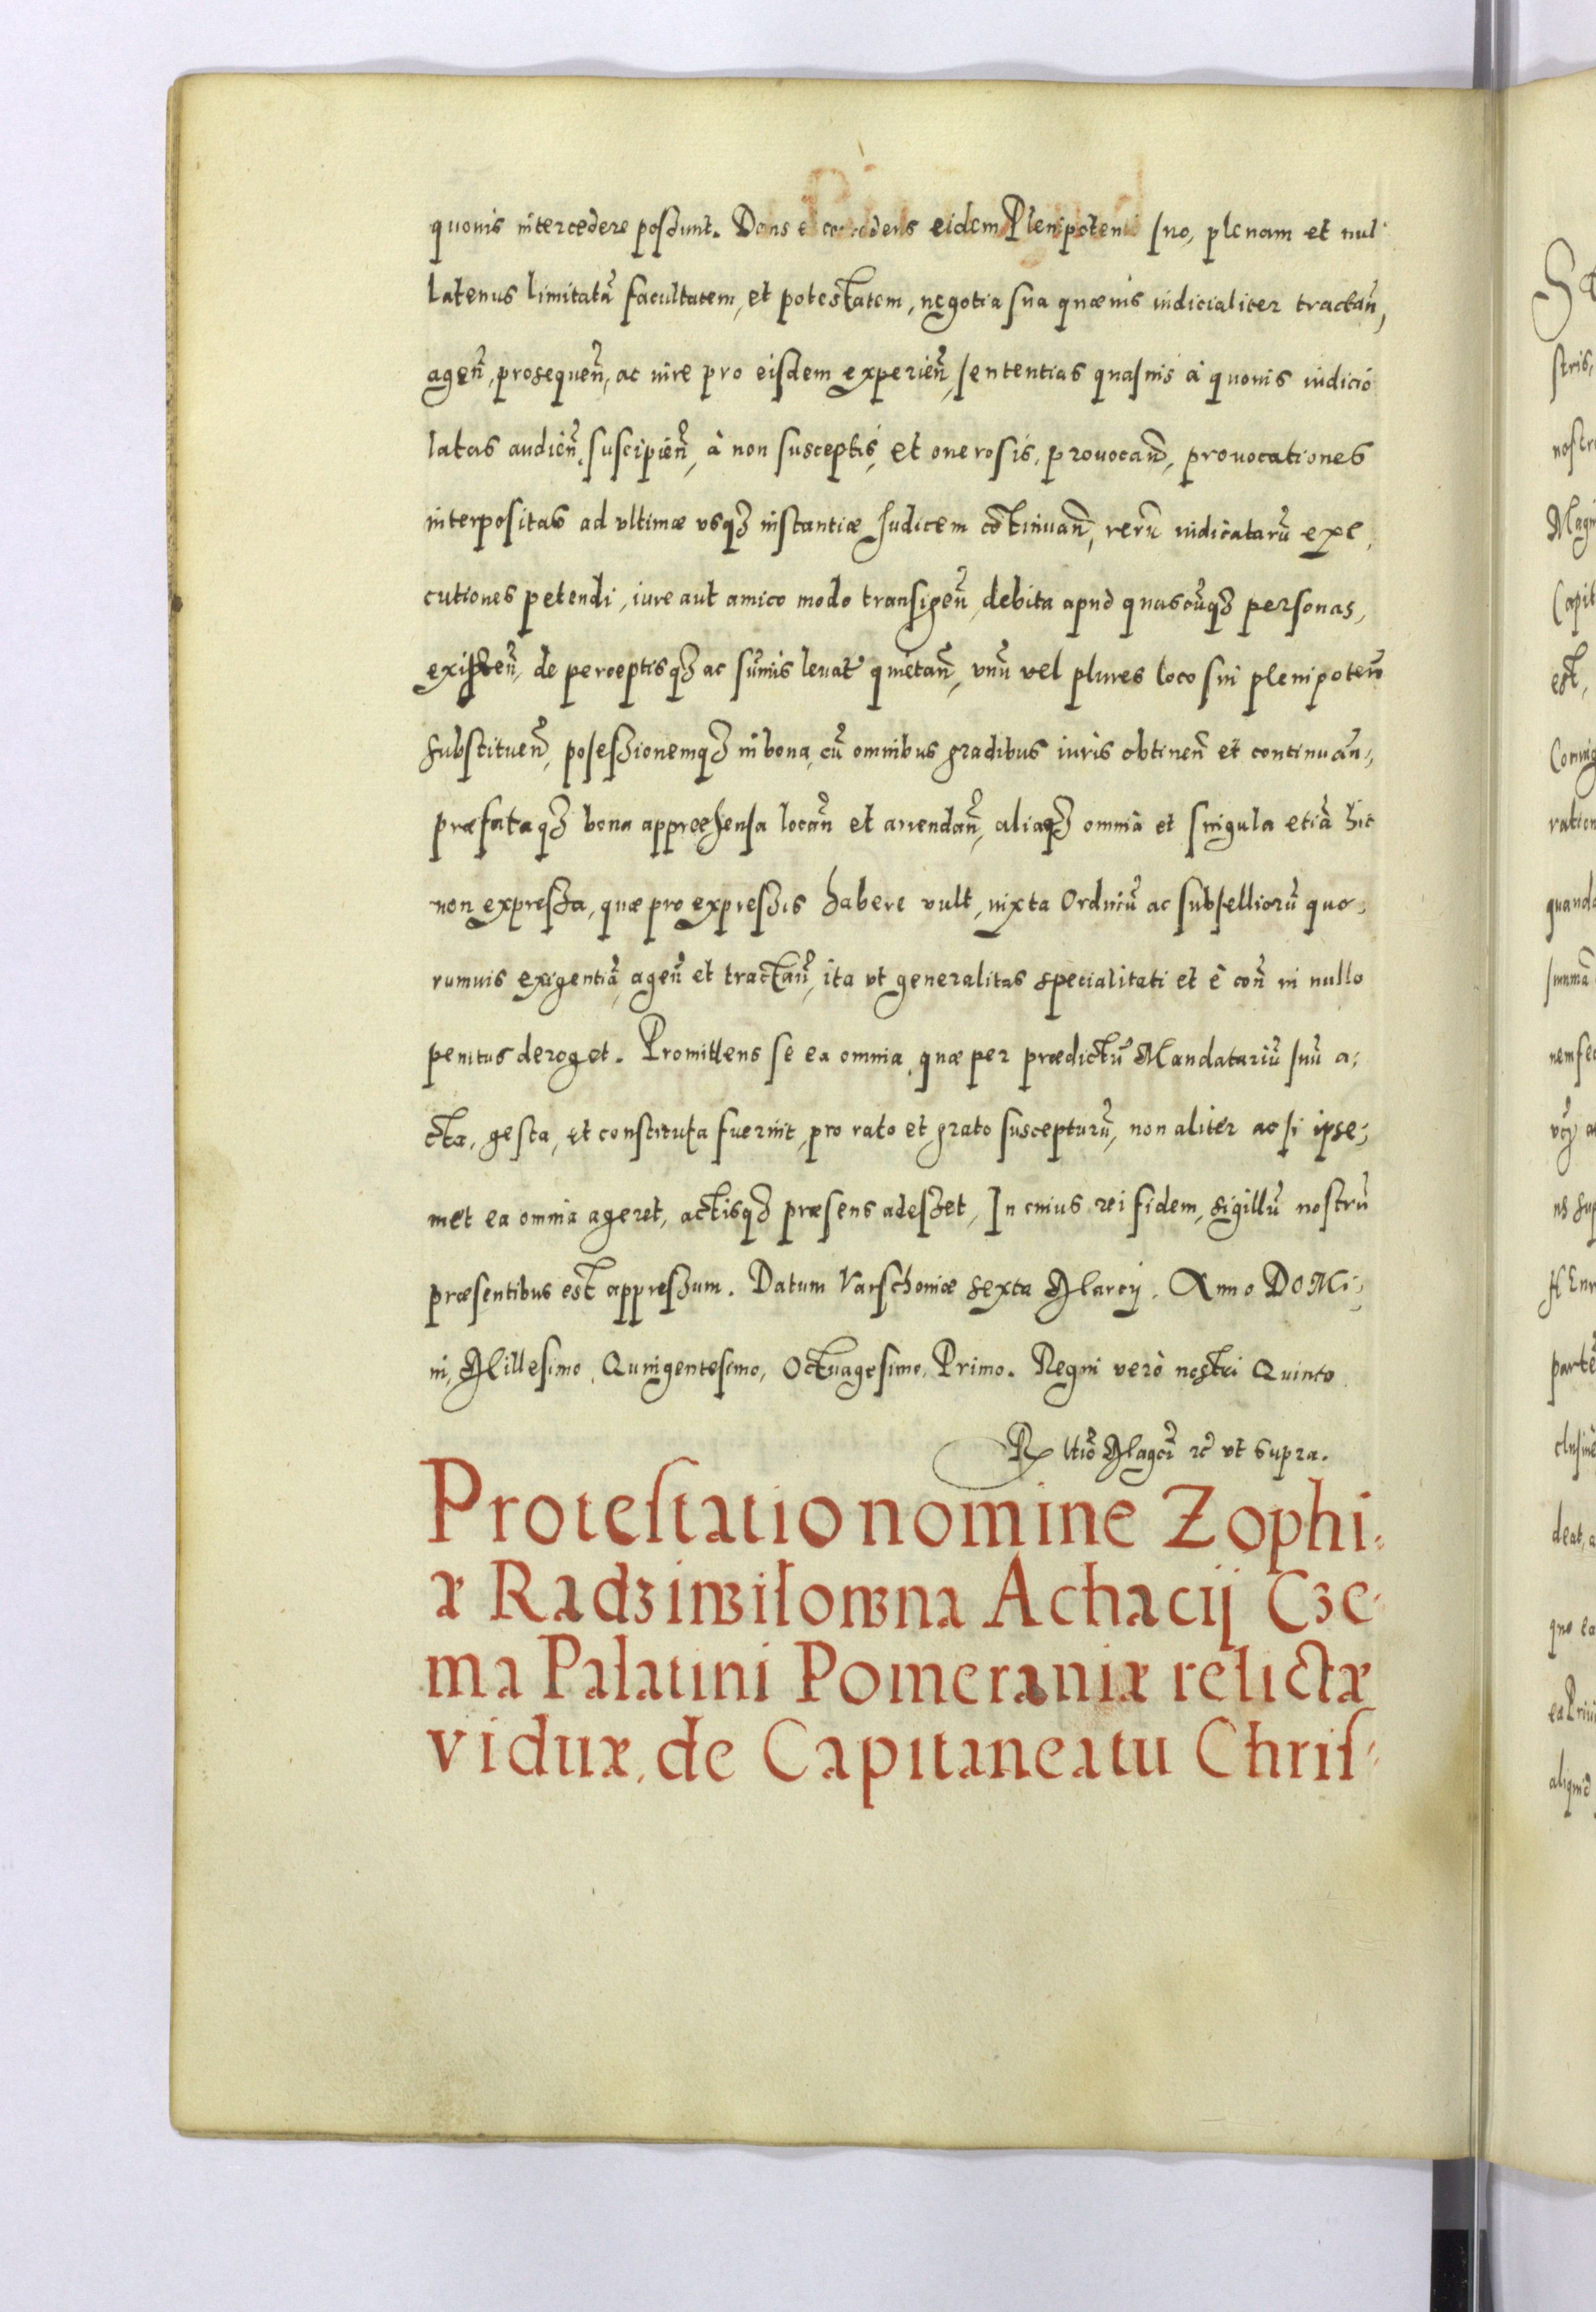 quouis intercedere possunt. Dans et concedens eidem Plenipotenti suo, plenam et nul
latenus limitatã facultatem, et potestatem, negotia sua quæuis iudicialiter tractañ,
ageñ, prosequeñ, ac iure pro eisdem experieñ, sententias quasuis à quouis iudicio
latas audieñ, suscipieñ, à non susceptis, et onerosis, prouocañ, prouocationes
interpositas ad vltimæ vsqꝫ instantiæ Iudicem cõtinuañ, rerũ iudicatarũ exe,
cutiones petendi, iure aut amico modo transigeñ, debita apud quascũqꝫ personas,
exigeñ, de perceptisqꝫ ac sum̃is leuat quietañ, vnũ vel plures loco sui plenipoteñ
substitueñ, possessionemqꝫ in bona, cũ omnibus gradibus iuris obtineñ et continuañ,
præfataqꝫ bona appræhensa locañ et arrendañ, aliaqꝫ omnia et singula etiã hic
non expressa, quæ pro expressis habere vult, iuxta Ordinũ ac subselliorũ quo,
rumuis exigentiã, ageñ et tractañ, ita vt generalitas specialitati et è coñ in nullo
penitus deroget. Promittens se ea omnia, quæ per prædictũ Mandatariũ suũ a,
cta, gesta, et constituta fuerint, pro rato et grato suscepturũ, non aliter ac si ipse,
met ea omnia ageret, actisqꝫ præsens adesset, In cuius rei fidem, sigillũ nostrũ
præsentibus est appressum. Datum Varschouiæ sexta Marcij. Anno DOMi,
ni, Millesimo, Quingentesimo, Octuagesimo, Primo. Regni verò nostri Quinto
vt supra.
Protestatio nomine Zophi,
æ Radziwilowna Achacij Cze,
ma Palatini Pomeraniæ relictæ
viduæ, de Capitaneatu Chris,